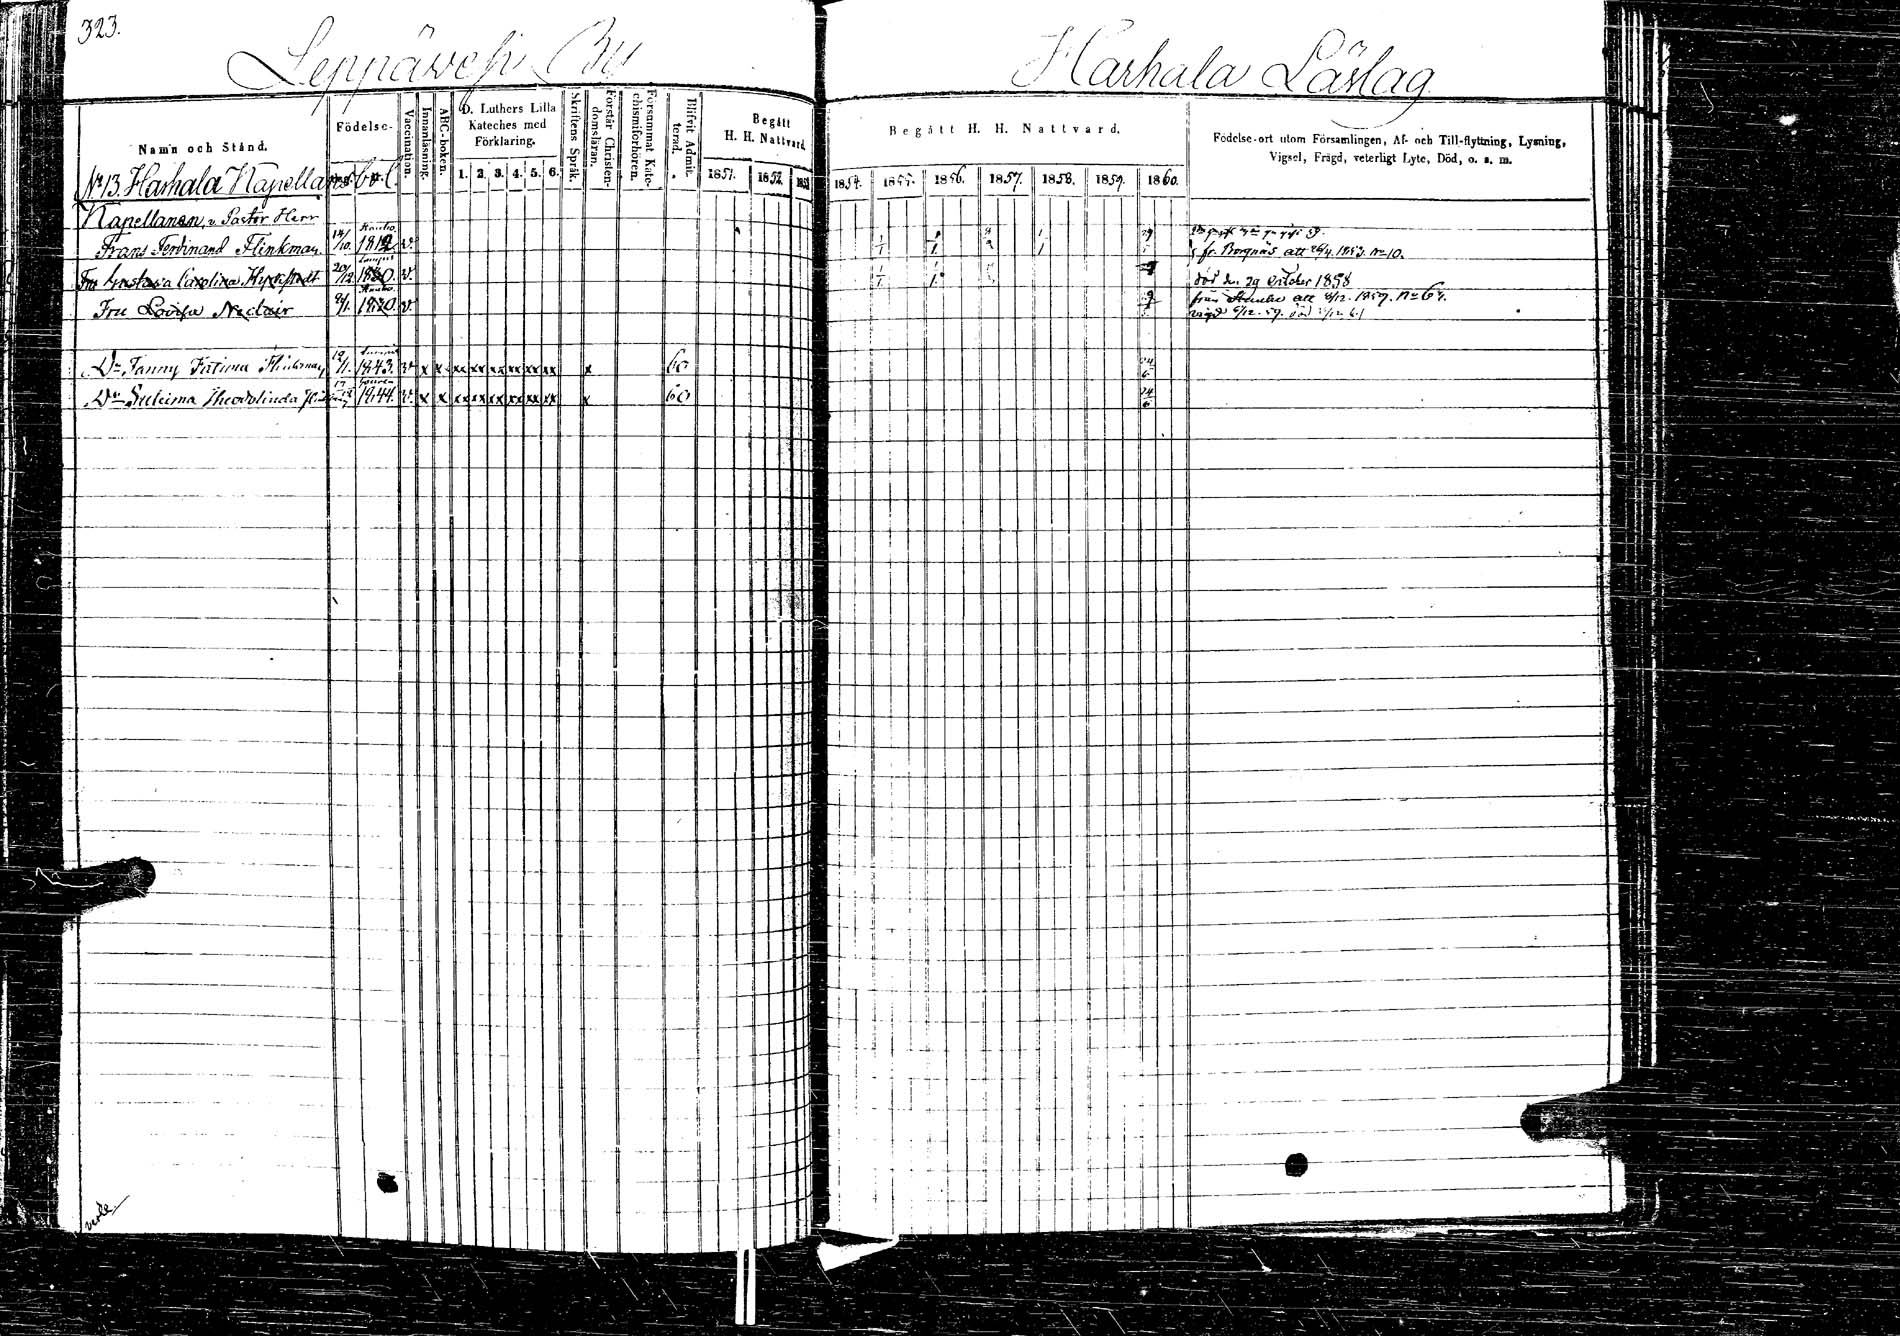 323.
Leppävesi By
Harhala Läslag
Namn och Stånd.
Födelse-
Vaccination.
Innanläsning.
ABC-boken.
D. Luthers Lilla
Kateches med
Förklaring.
1. 2. 3. 4. 5. 6.
Skriftens Språk.
Förstår Christen-
domsläran.
Försummat Kate-
chismiförhören.
Blifvit Admit-
terad.
Begått
H. H. Nattvard.
1851. 1852. 1853
Begått H. H. Nattvard.
1854. 1855. 1856. 1857. 1858. 1859. 1860.
Födelse-ort utom Församlingen, Af- och Till-flyttning, Lysning,
Vigsel, Frägd, veterligt Lyte, Död, o. s. m.
No 13. Harhala Kapellans bol.
Kapellanen, v. Pastor Herr
Frans Ferdinand Flinkman 14/10. 1812 v. fr. Borgnäs att 26/4. 1853. No 10.
Fru Gustava Carolina 20/12. 1820. v. död den 29 October 1858
Fru Lovisa 9/1. 1820. v. från att 8/12. 1859. No 64.
vigd 6/12. 59. död
Dr Fanny Fatima Flinkman 12/1. 1843. v. x x xx xx xx xx xx xx x 60 24/6
Dr Suleima Theodolinda 1844. v. x x xx xx xx xx xx xx x 60 24/6